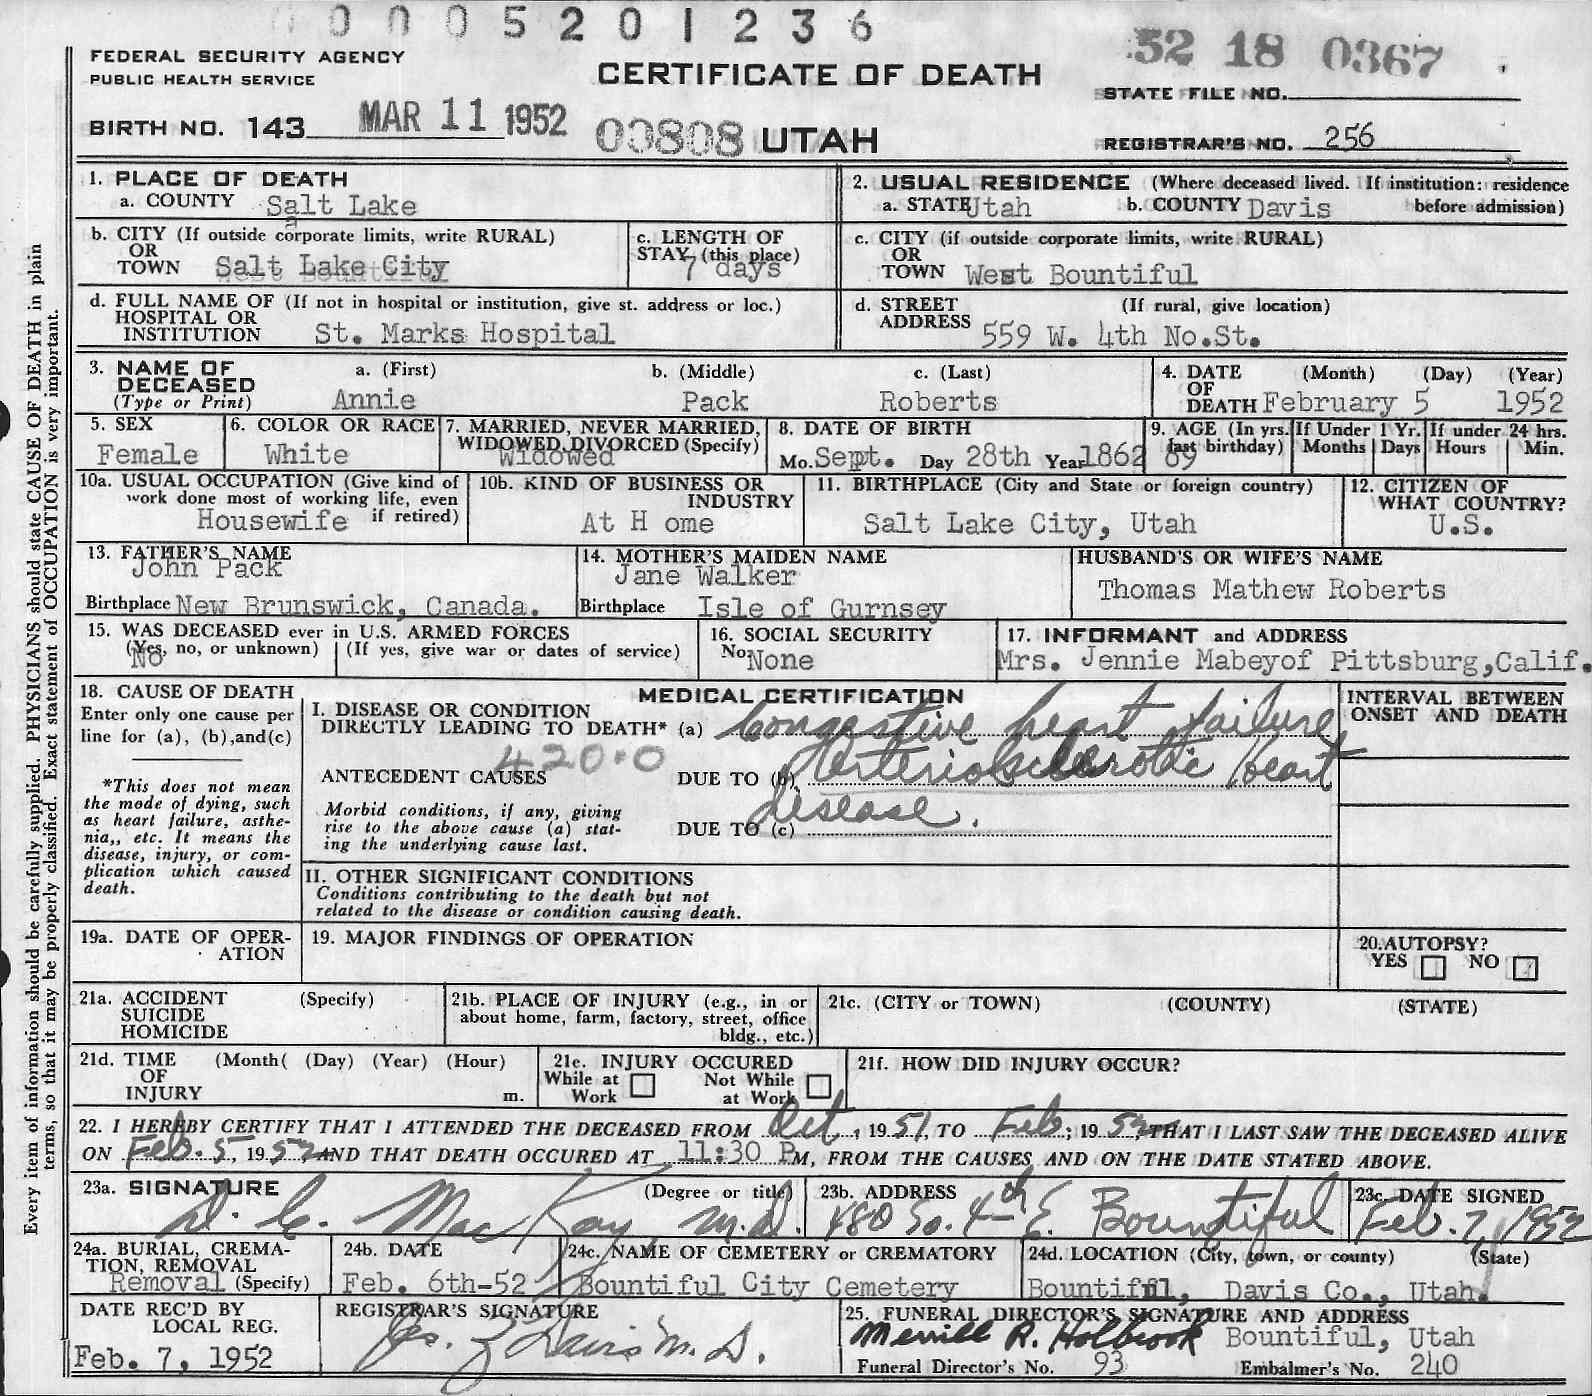 0005201236
52 18 0367
FEDERAL SECURITY AGENCY
PUBLIC HEALTH SERVICE
CERTIFICATE OF DEATH
STATE FILE NO.
BIRTH NO. 143 MAR 11 1952 00808 UTAH
REGISTRAR'S NO. 256
Every item of information should be carefully supplied. PHYSICIANS should state CAUSE OF DEATH in plain
terms, so that it may be properly classified. Exact statement of OCCUPATION is very important.
1. PLACE OF DEATH
a. COUNTY Salt Lake
2. USUAL RESIDENCE (Where deceased lived. If institution: residence
a. STATE Utah b. COUNTY Davis before admission)
b. CITY (If outside corporate limits, write RURAL)
OR
TOWN Salt Lake City
c. LENGTH OF
STAY (this place)
7 days
c. CITY (if outside corporate limits, write RURAL)
OR
TOWN West Bountiful
d. FULL NAME OF (If not in hospital or institution, give st. address or loc.)
HOSPITAL OR
INSTITUTION St. Marks Hospital
d. STREET (If rural, give location)
ADDRESS 559 W. 4th No.St.
3. NAME OF a. (First) b. (Middle) c. (Last)
DECEASED
(Type or Print) Annie Pack Roberts
4. DATE (Month) (Day) (Year)
OF
DEATH February 5 1952
5. SEX
Female
6. COLOR OR RACE
White
7. MARRIED, NEVER MARRIED,
WIDOWED, DIVORCED (Specify)
Widowed
8. DATE OF BIRTH
Mo. Sept. Day 28th Year 1862
9. AGE (In yrs. last birthday) 89
If Under 1 Yr. Months Days
If under 24 hrs. Hours Min.
10a. USUAL OCCUPATION (Give kind of
work done most of working life, even
Housewife if retired)
10b. KIND OF BUSINESS OR
INDUSTRY
At H ome
11. BIRTHPLACE (City and State or foreign country)
Salt Lake City, Utah
12. CITIZEN OF
WHAT COUNTRY?
U.S.
13. FATHER'S NAME
John Pack
Birthplace New Brunswick, Canada.
14. MOTHER'S MAIDEN NAME
Jane Walker
Birthplace Isle of Gurnsey
HUSBAND'S OR WIFE'S NAME
Thomas Mathew Roberts
15. WAS DECEASED ever in U.S. ARMED FORCES
(Yes, no, or unknown) (If yes, give war or dates of service)
No
16. SOCIAL SECURITY
No. None
17. INFORMANT and ADDRESS
Mrs. Jennie Mabeyof Pittsburg,Calif.
18. CAUSE OF DEATH
Enter only one cause per
line for (a), (b),and(c)
*This does not mean
the mode of dying, such
as heart failure, asthe-
nia,, etc. It means the
disease, injury, or com-
plication which caused
death.
MEDICAL CERTIFICATION
I. DISEASE OR CONDITION
DIRECTLY LEADING TO DEATH* (a) Congestive heart failure
420.0
ANTECEDENT CAUSES DUE TO (b) Arteriosclerotic heart
disease.
Morbid conditions, if any, giving
rise to the above cause (a) stat-
ing the underlying cause last.
DUE TO (c)
INTERVAL BETWEEN
ONSET AND DEATH
II. OTHER SIGNIFICANT CONDITIONS
Conditions contributing to the death but not
related to the disease or condition causing death.
19a. DATE OF OPER-
ATION
19. MAJOR FINDINGS OF OPERATION
20.AUTOPSY?
YES NO
21a. ACCIDENT (Specify)
SUICIDE
HOMICIDE
21b. PLACE OF INJURY (e.g., in or
about home, farm, factory, street, office
bldg., etc.)
21c. (CITY or TOWN) (COUNTY) (STATE)
21d. TIME (Month( (Day) (Year) (Hour)
OF
INJURY m.
21e. INJURY OCCURED
While at Work Not While at Work
21f. HOW DID INJURY OCCUR?
22. I HEREBY CERTIFY THAT I ATTENDED THE DECEASED FROM Oct, 1951, TO Feb; 1952, THAT I LAST SAW THE DECEASED ALIVE
ON Feb. 5, 1952 AND THAT DEATH OCCURED AT 11:30 P M, FROM THE CAUSES AND ON THE DATE STATED ABOVE.
23a. SIGNATURE (Degree or title)
D. C. MacKay, M.D.
23b. ADDRESS
480 So. 4th E. Bountiful
23c. DATE SIGNED
Feb. 7, 1952
24a. BURIAL, CREMA-
TION, REMOVAL
Removal (Specify)
24b. DATE
Feb. 6th-52
24c. NAME OF CEMETERY or CREMATORY
Bountiful City Cemetery
24d. LOCATION (City, town, or county) (State)
Bountiful, Davis Co., Utah.
DATE REC'D BY
LOCAL REG.
Feb. 7, 1952
REGISTRAR'S SIGNATURE
Davis M.D.
25. FUNERAL DIRECTOR'S SIGNATURE AND ADDRESS
Merrill R. Holbrook Bountiful, Utah
Funeral Director's No. 93 Embalmer's No. 240